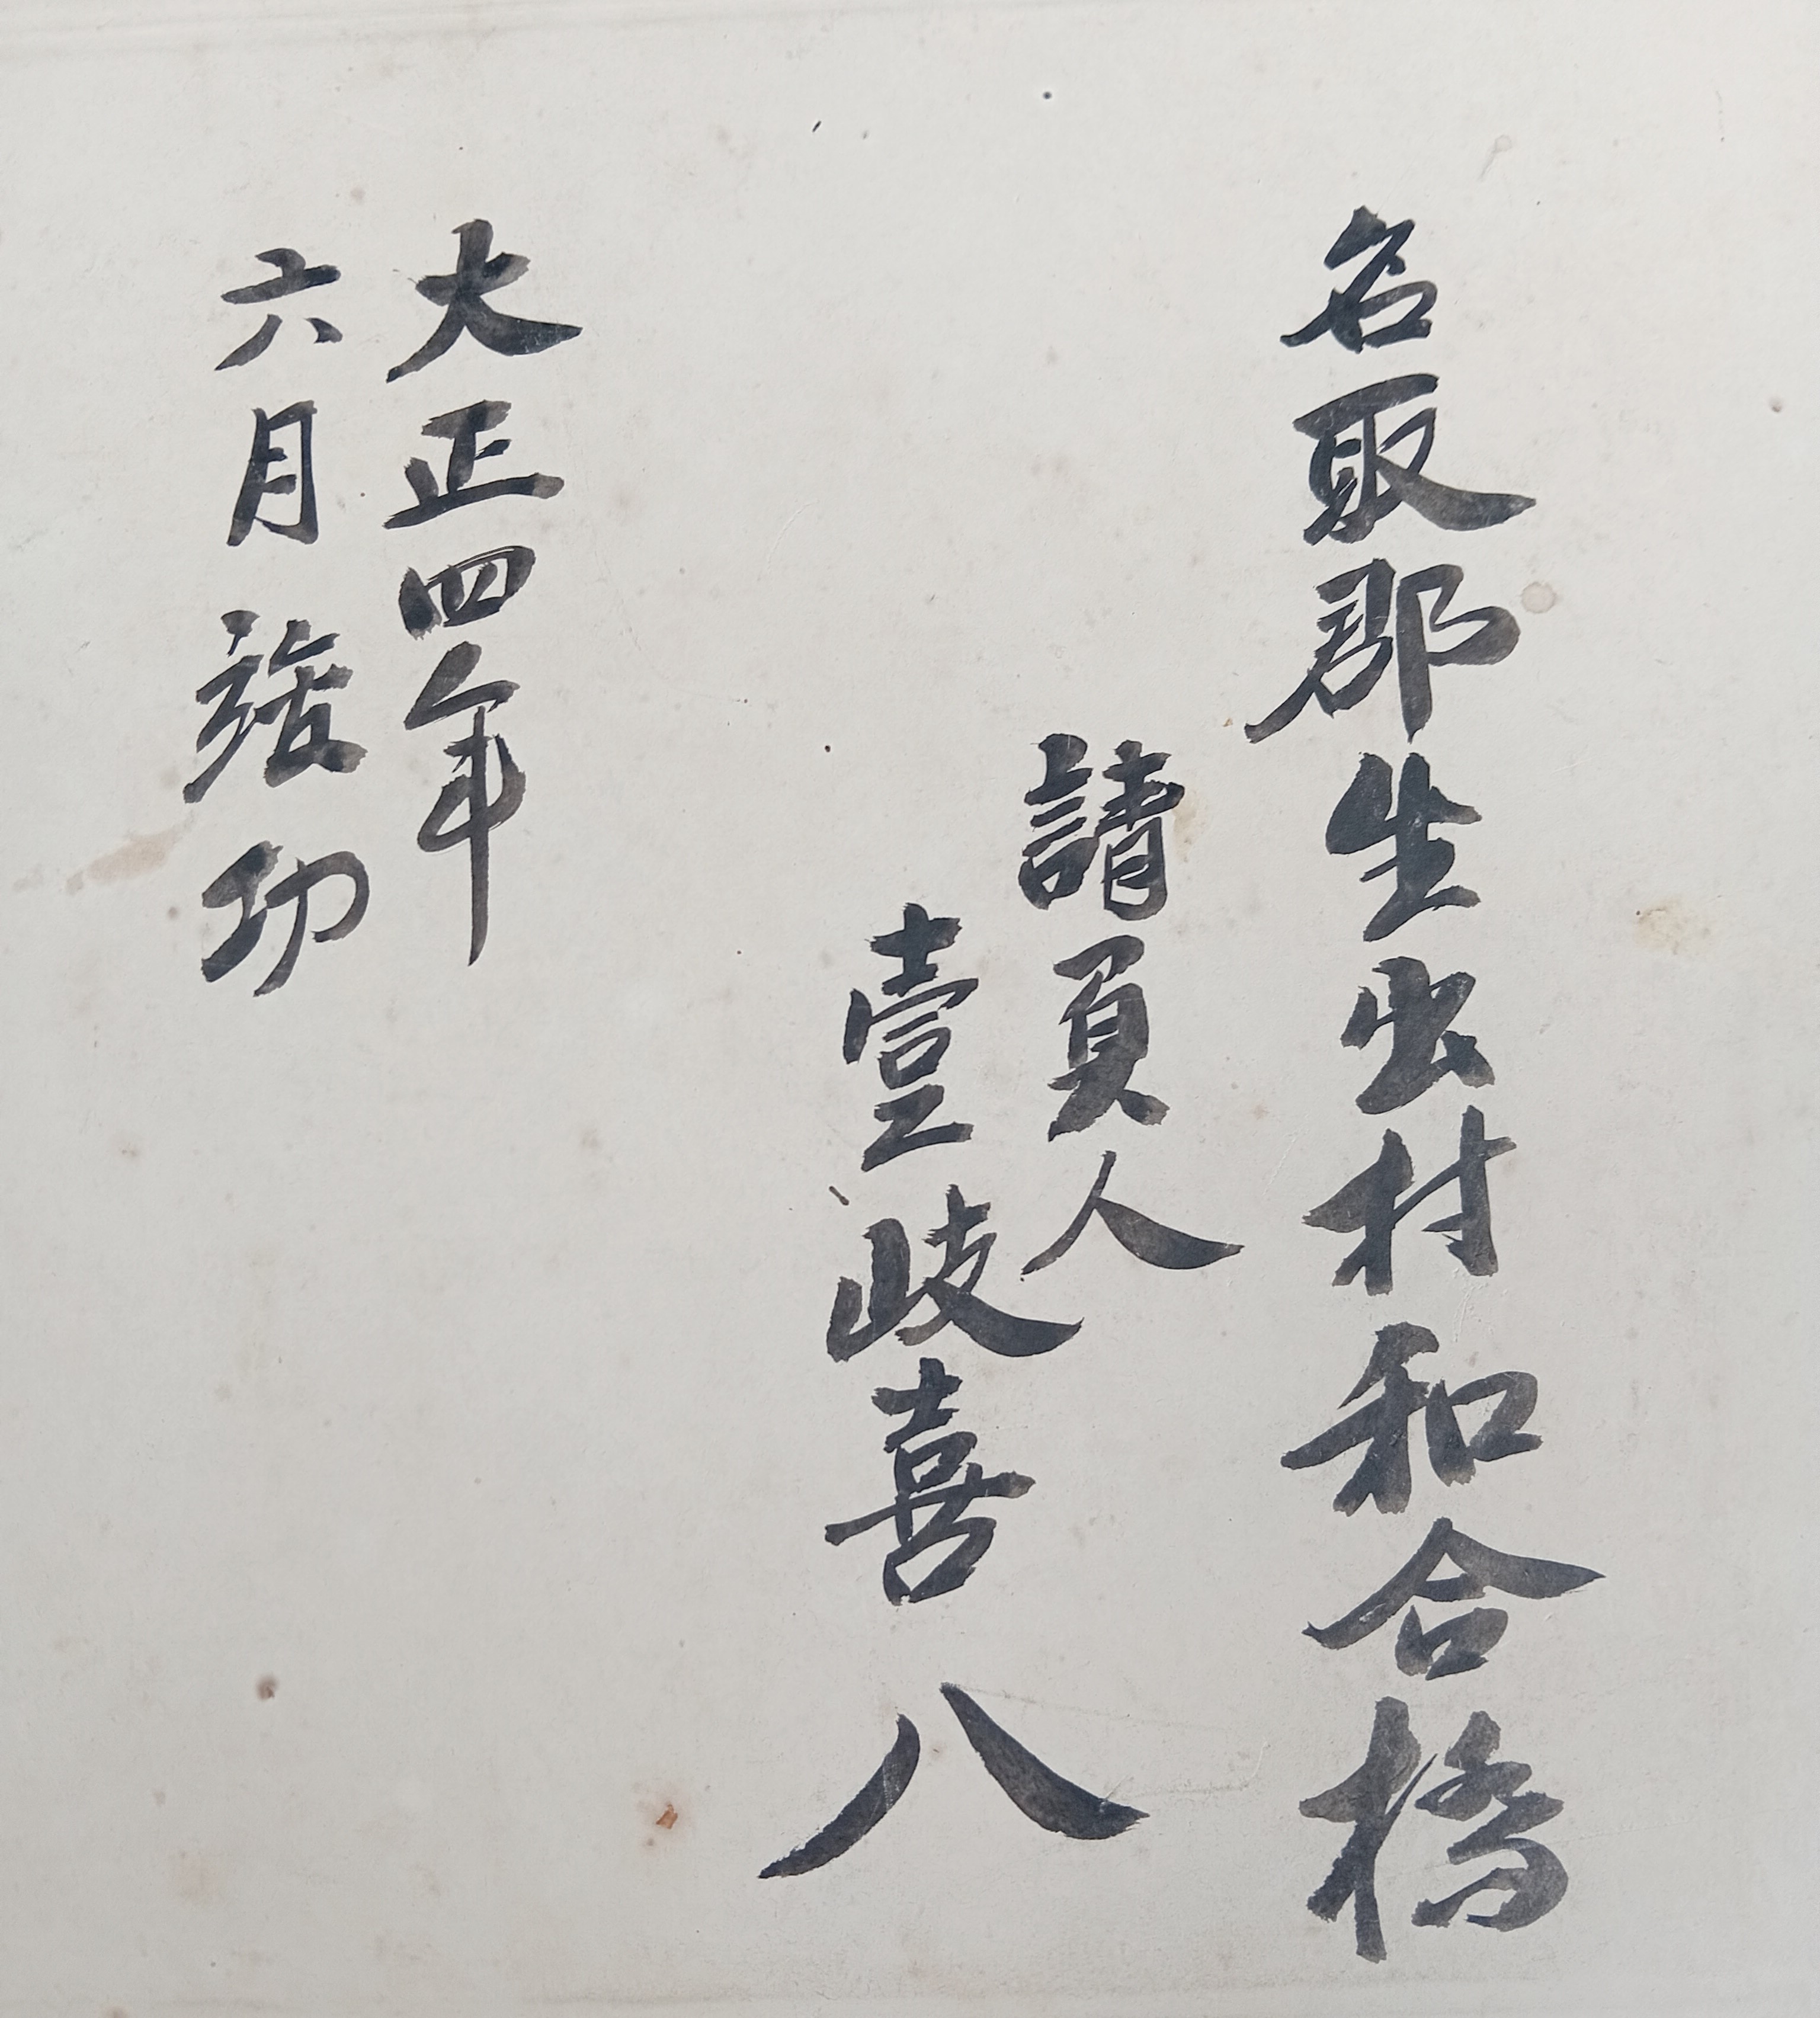 名取郡生出村和合橋
請負人
壹岐喜八
大正四年
六月竣功